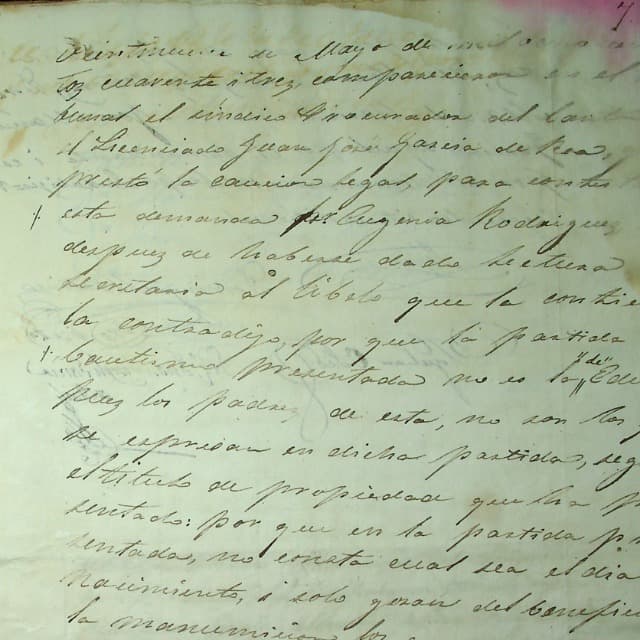 veintinueve de Mayo de mil ocho
tos cuarenta i tres, comparecieron en el
bunal el sindico Procurador del Can
el Licenciado Juan José Garcia de
prestó la caucion legal, para contes
esta demanda Eugenia Rodriguez
despues de haberse dado lectura
secretaria al libelo que la contie
la contradijo, por que la partida
bautismo presentada no es la "de" Edu
pues los padres de esta, no son los
se expresan en dicha partida, seg
el titulo de propiedad que ha pre
sentado: por que en la partida pre
sentada, no consta cual sea el dia
nacimiento, i solo gozan del benefici
la manumision los